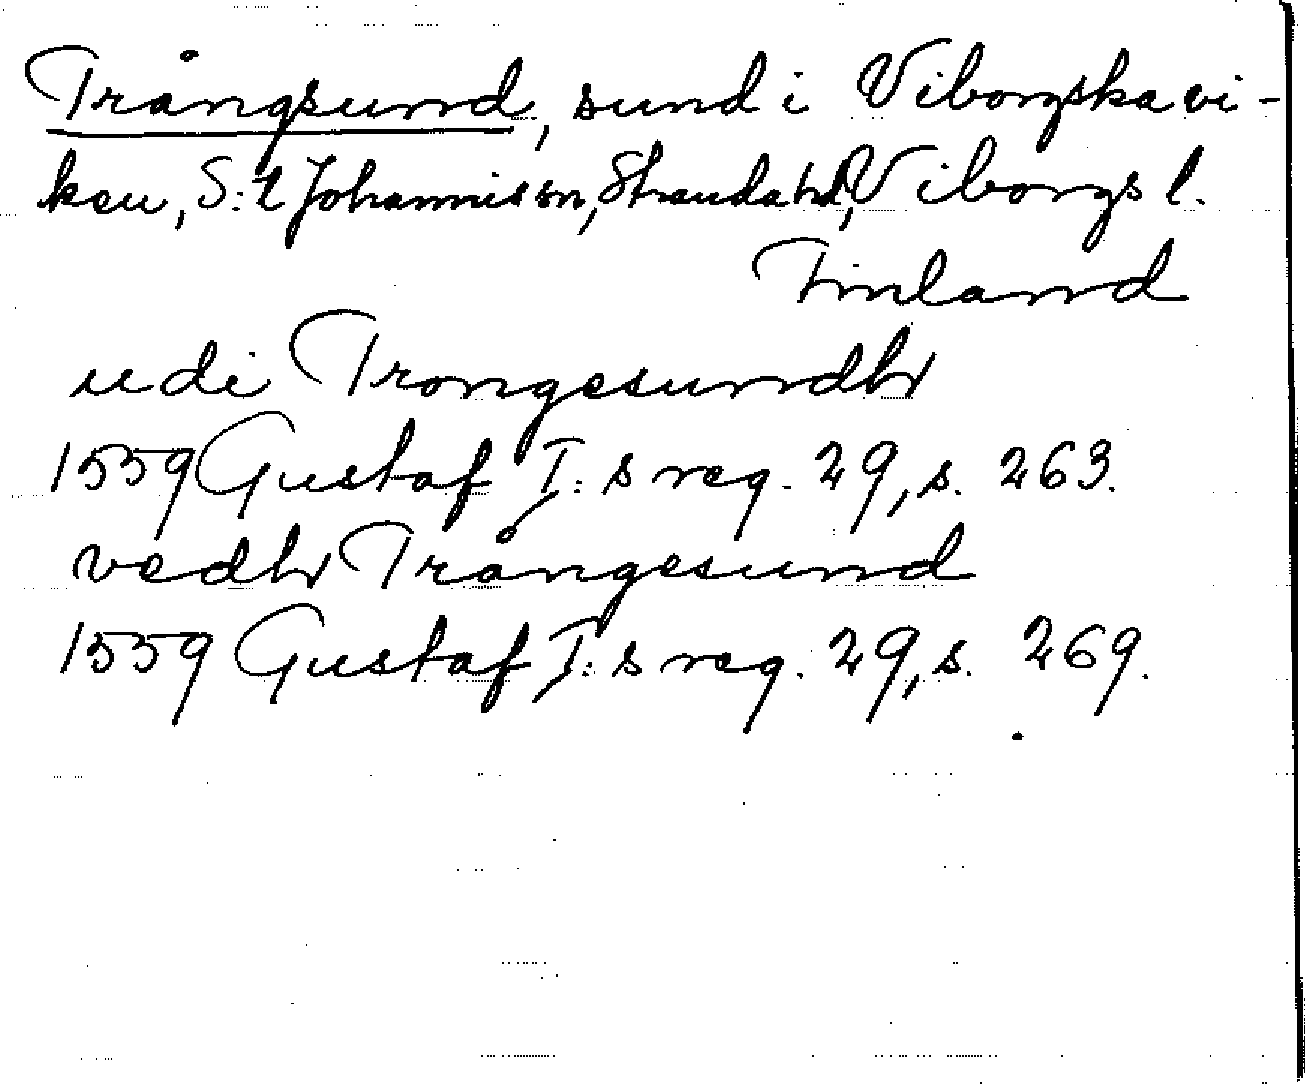 Trångsund, sund i Viborgska vi-
ken, S:t Johannis sn, Stranda hd, Viborgs l.
Finland
udi Trongesundh
1559 Gustaf I:s reg. 29, s. 263.
vedh Trångesund
1559 Gustaf I:s reg. 29, s. 269.